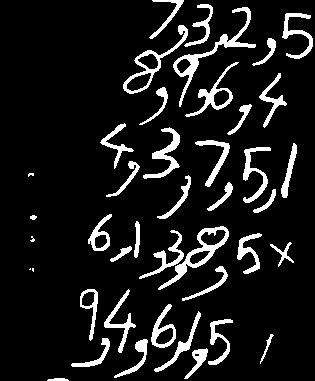 7,3,2,5
8,9,6,4
4,3,7,5,1
6,1,3,8,5x
9,4,6,1,5 /